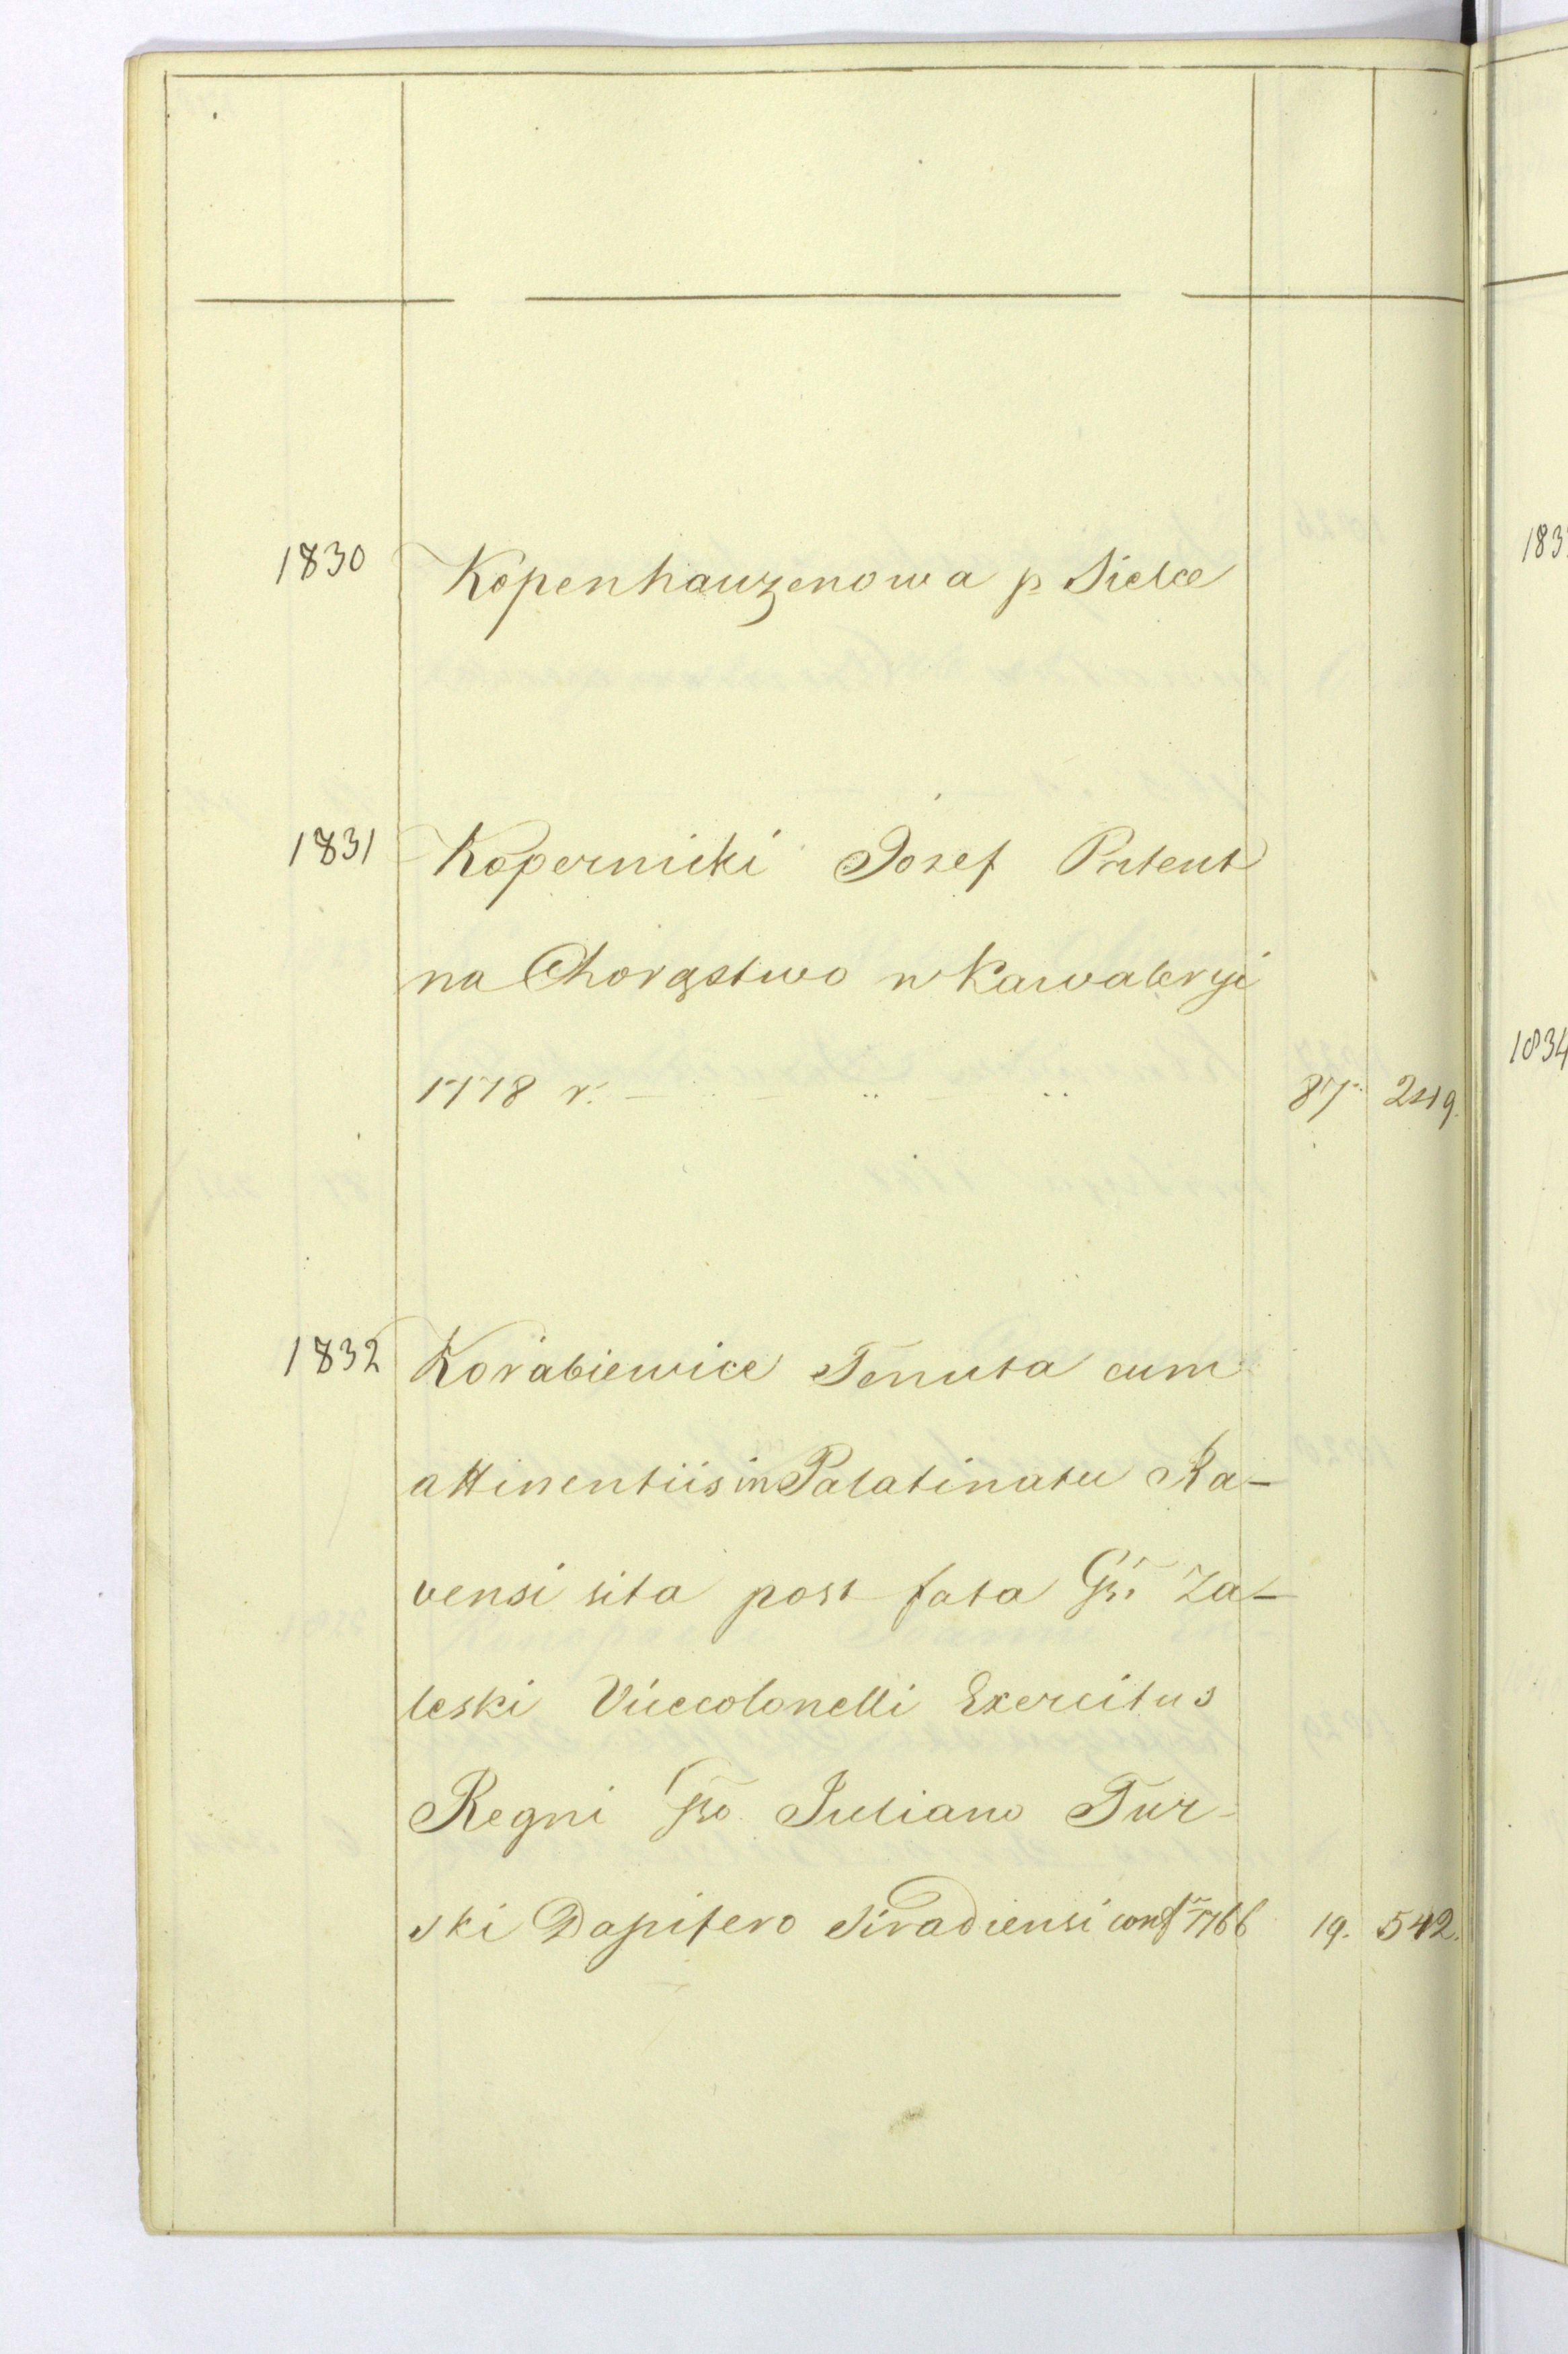 1830 Kopenhauzenowa p Sielce
1831 Kopernicki Jozef Patent
na Chorąstwo w Kawaleryi
1778 r. 87. 249.
1832 Korabiewice Tenuta cum
attinentiis in Palatinatu Ra-
vensi sita post fata Gsi Za-
leski Vicecolonelli Exercitus
Regni Gso Juliano Tur-
ski Dapifero Siradiensi conf 1766 19. 542.
183
1834